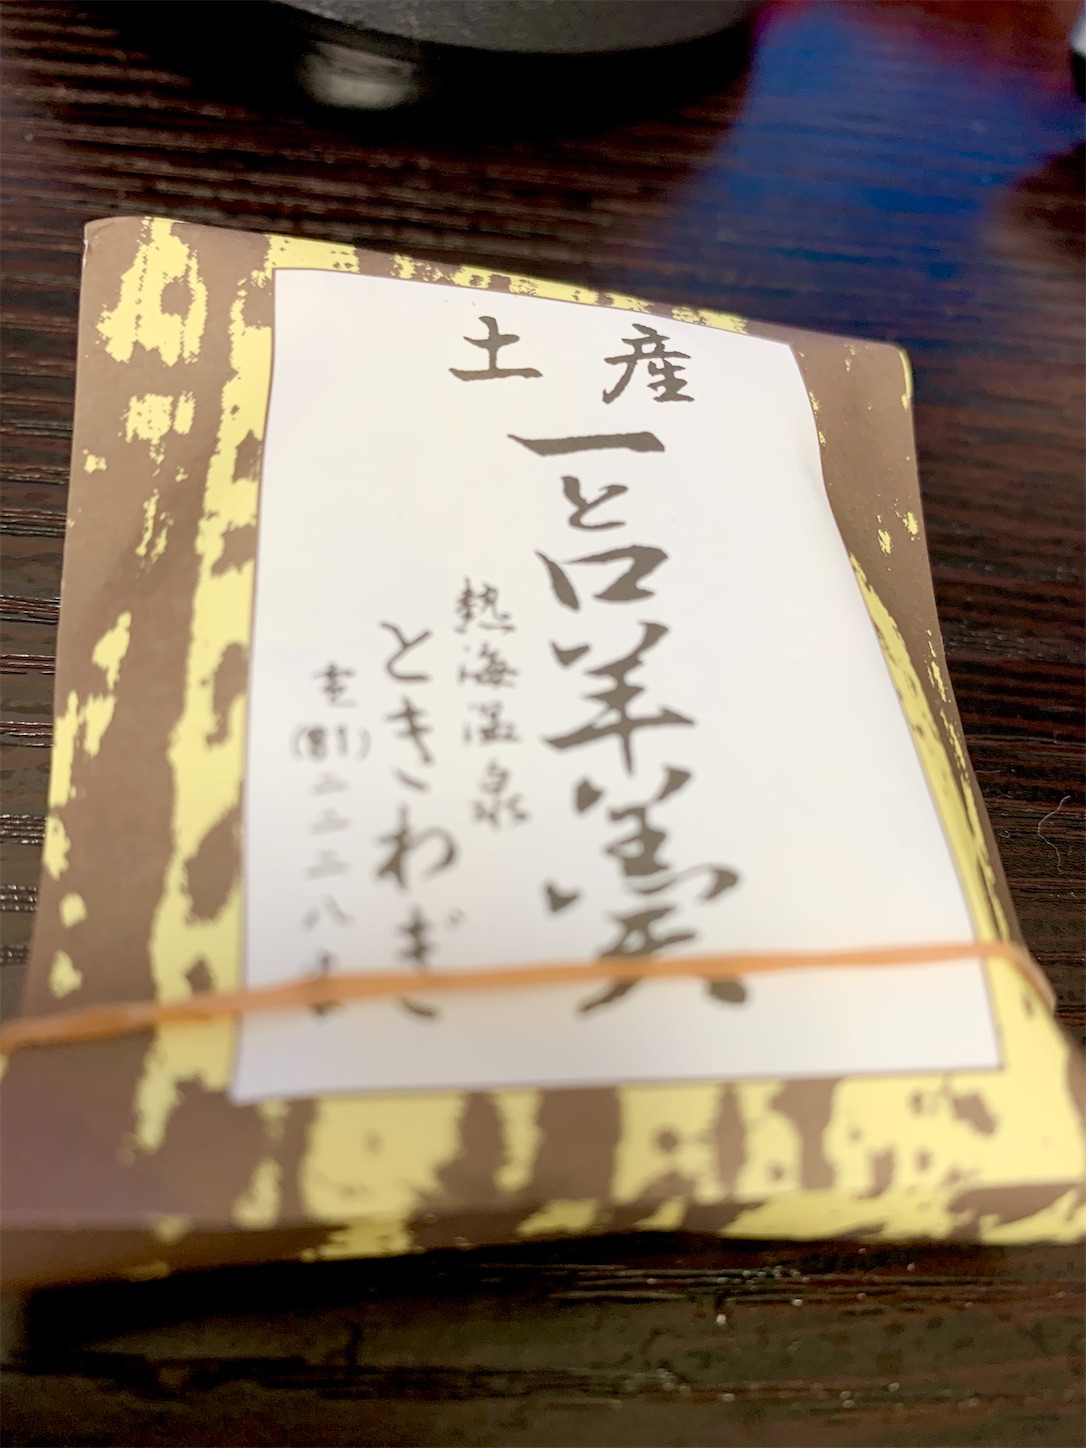 土産
一と口羊羹
熱海温泉
ときわぎ
(81)二二二八